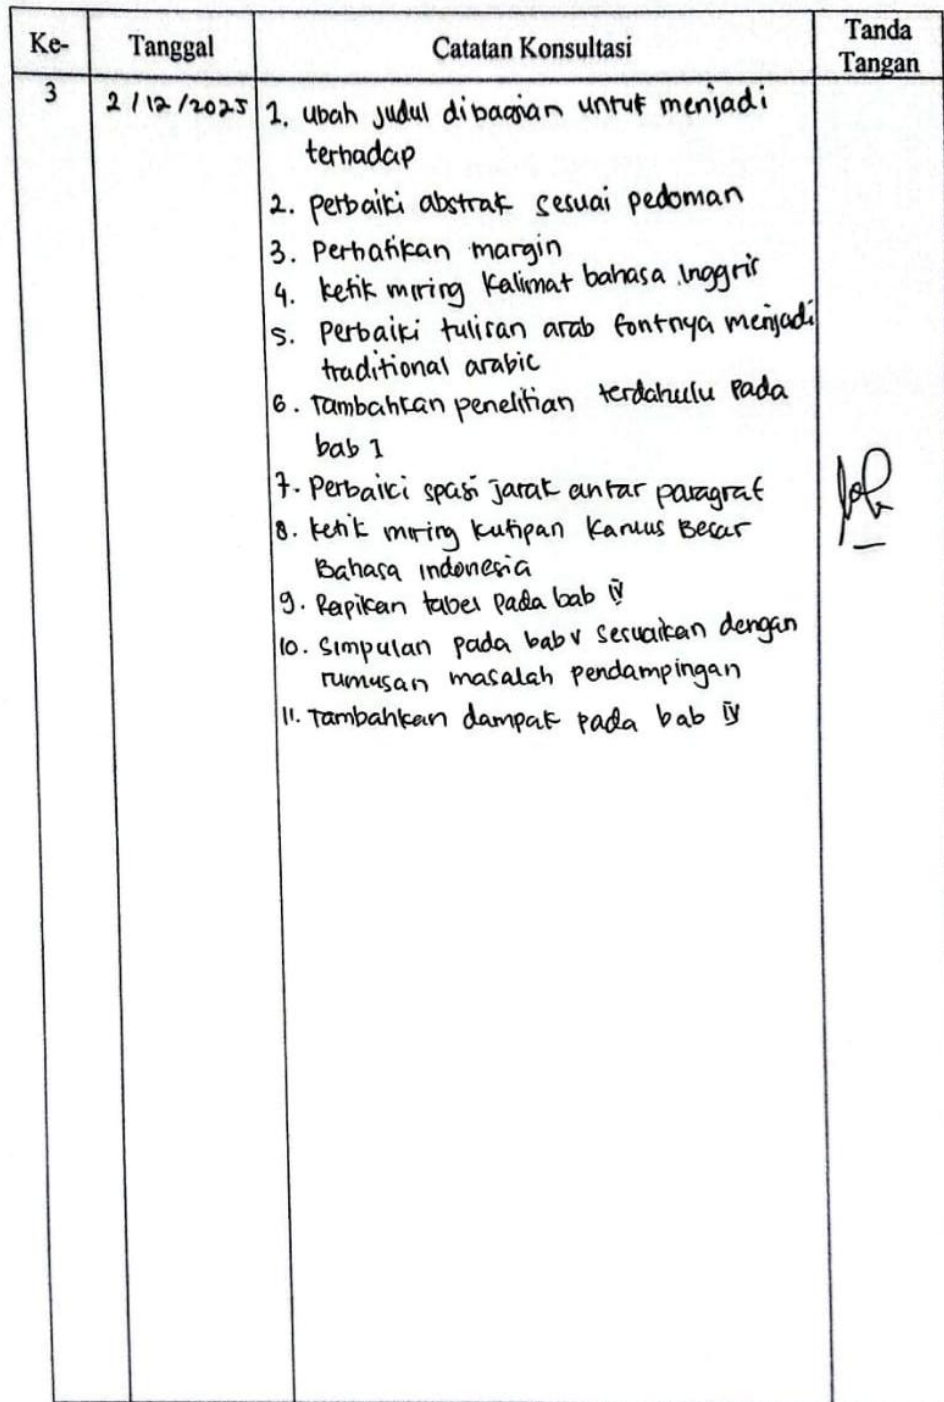 Ke- Tanggal Catatan Konsultasi Tanda Tangan
3 2/12/2025 1. ubah judul dibagian untuk menjadi
terhadap
2. perbaiki abstrak sesuai pedoman
3. Perhatikan margin
4. ketik miring Kalimat bahasa Inggris
5. Perbaiki tulisan arab fontnya menjadi
traditional arabic
6. Tambahkan penelitian terdahulu Pada
bab 1
7. Perbaiki spasi jarak antar paragraf
8. ketik miring kutipan Kamus Besar
Bahasa indonesia
9. Rapikan tabel Pada bab iv
10. Simpulan pada bab v sesuaikan dengan
rumusan masalah pendampingan
11. Tambahkan dampak pada bab iv